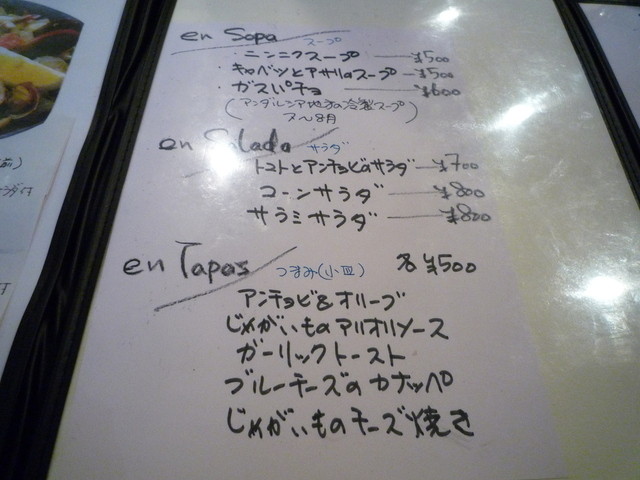 en Sopa スープ
・ニンニクスープ ¥500
・キャベツとアサリのスープ ¥500
・ガスパチョ ¥600
(アンダルシア地方の冷製スープ)
7〜8月
en Salada サラダ
トマトとアンチョビのサラダ ¥700
コーンサラダ ¥800
サラミサラダ ¥800
en Tapas つまみ(小皿) 各¥500
アンチョビ&オリーブ
じゃがいものアリオリソース
ガーリックトースト
ブルーチーズのカナッペ
じゃがいものチーズ焼き